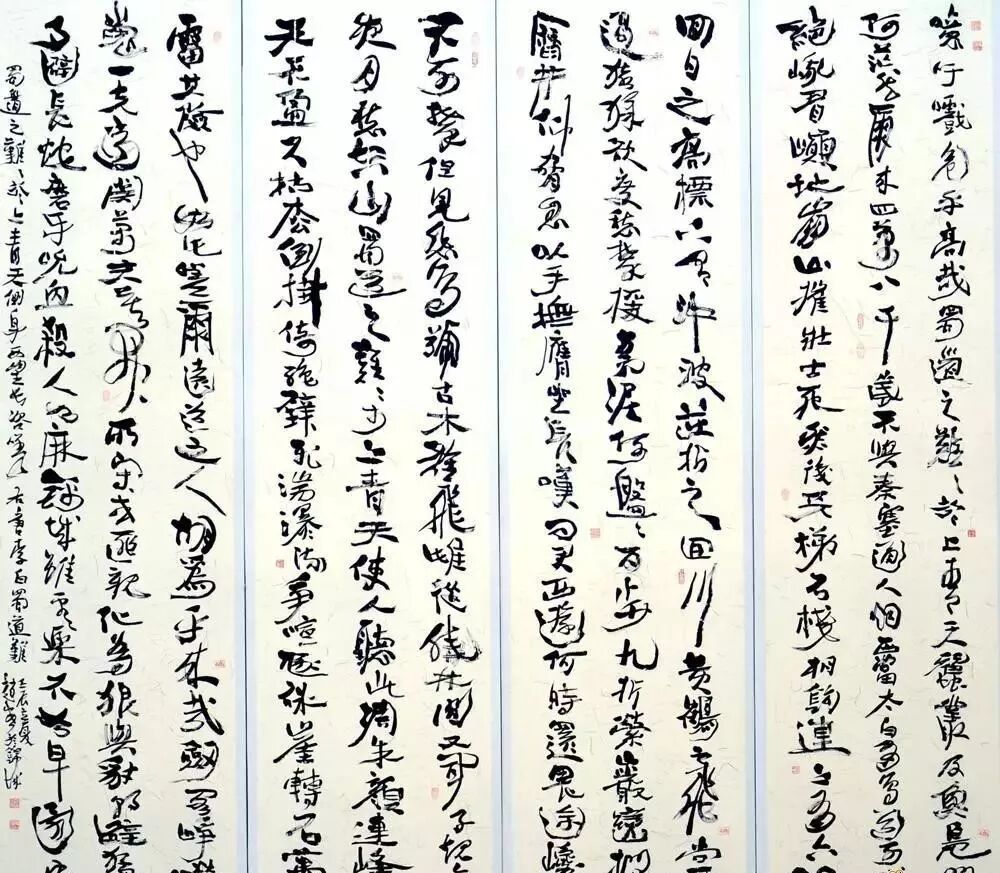 噫吁戲危乎高哉蜀道之難〻於上青天蠶叢及魚鳧
何茫然爾来四萬八千歲不與秦塞通人烟西當太白有鳥道可
絕峨眉巔地崩山摧壯士死然後天梯石棧相鉤連上有六龍
回日之高標下有衝波逆折之回川黄鶴之飛尚
過猿猱欲度愁攀援青泥何盤〻百步九折縈巖巒捫
曆井仰脅息以手撫膺坐長嘆問君西遊何時還畏途巉
不可攀但見悲鳥號古木雄飛雌從繞林間又聞子規
夜月愁空山蜀道之難〻於上青天使人聽此凋朱顏連峰
去天不盈尺枯松倒掛倚絕壁飛湍瀑流爭喧豗砯崖轉石萬
雷其險也如此嗟爾遠道之人胡為乎來哉劍閣崢
嵬一夫當關萬夫莫開所守或匪親化為狼與豺朝避猛
夕避長蛇磨牙吮血殺人如麻錦城雖云樂不如早還家
蜀道之難〻於上青天側身西望長咨嗟右書李白蜀道難
壬辰之夏